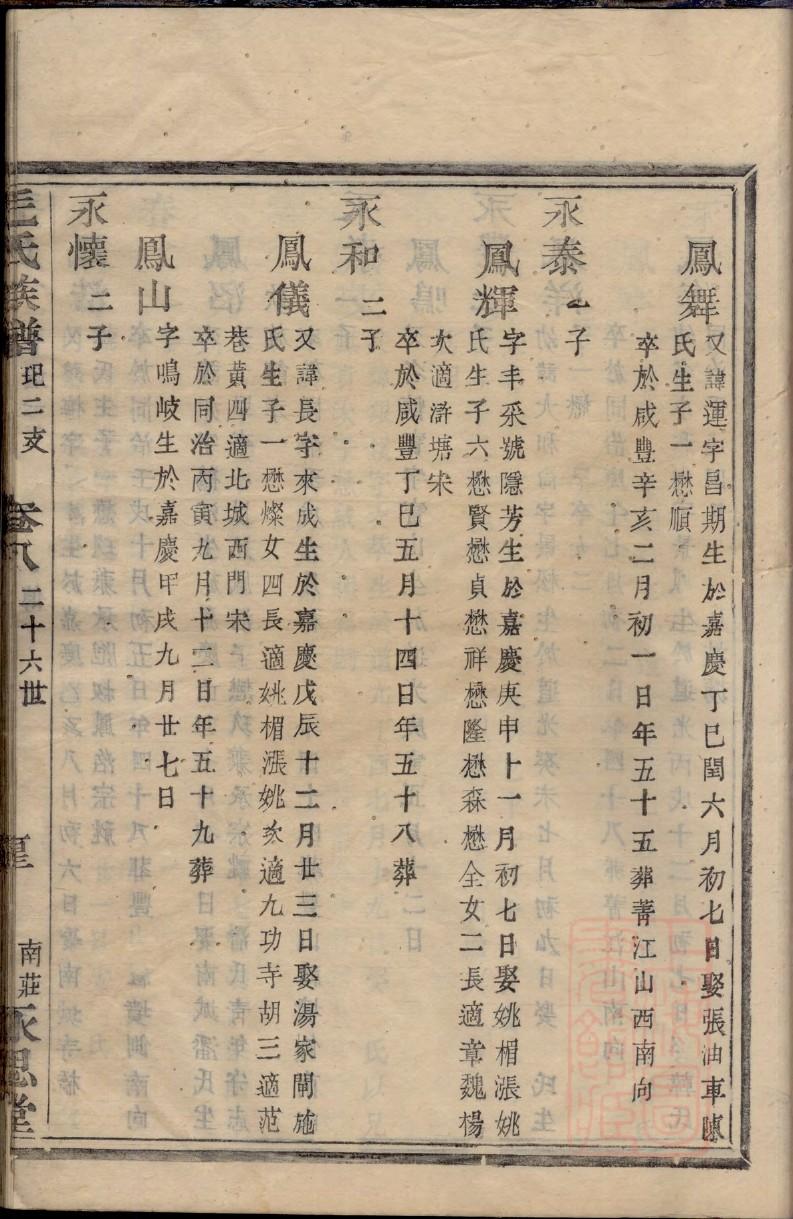 鳳舞又諱運字昌期生於嘉慶丁巳閏六月初七日娶張油車陳
氏生子一懋順
卒於咸豐辛亥二月初一日年五十五葬菁江山西南向
永泰一子
鳳輝字丰采號隱芳生於嘉慶庚申十一月初七日娶姚楣漲姚
氏生子六懋賢懋貞懋祥懋隆懋森懋全女二長適章魏楊
次適滸塘宋
卒於咸豐丁巳五月十四日年五十八葬
永和二子
鳳儀又諱長字來成生於嘉慶戊辰十二月廿三日娶湯家閘施
氏生子一懋燦女四長適姚楣漲姚次適九功寺胡三適范
巷黃四適北城西門宋
卒於同治丙寅九月十二日年五十九葬
鳳山字鳴岐生於嘉慶甲戌九月廿七日
永懷二子
毛氏族譜 玘二支 卷八 二十六世 南莊 永思堂